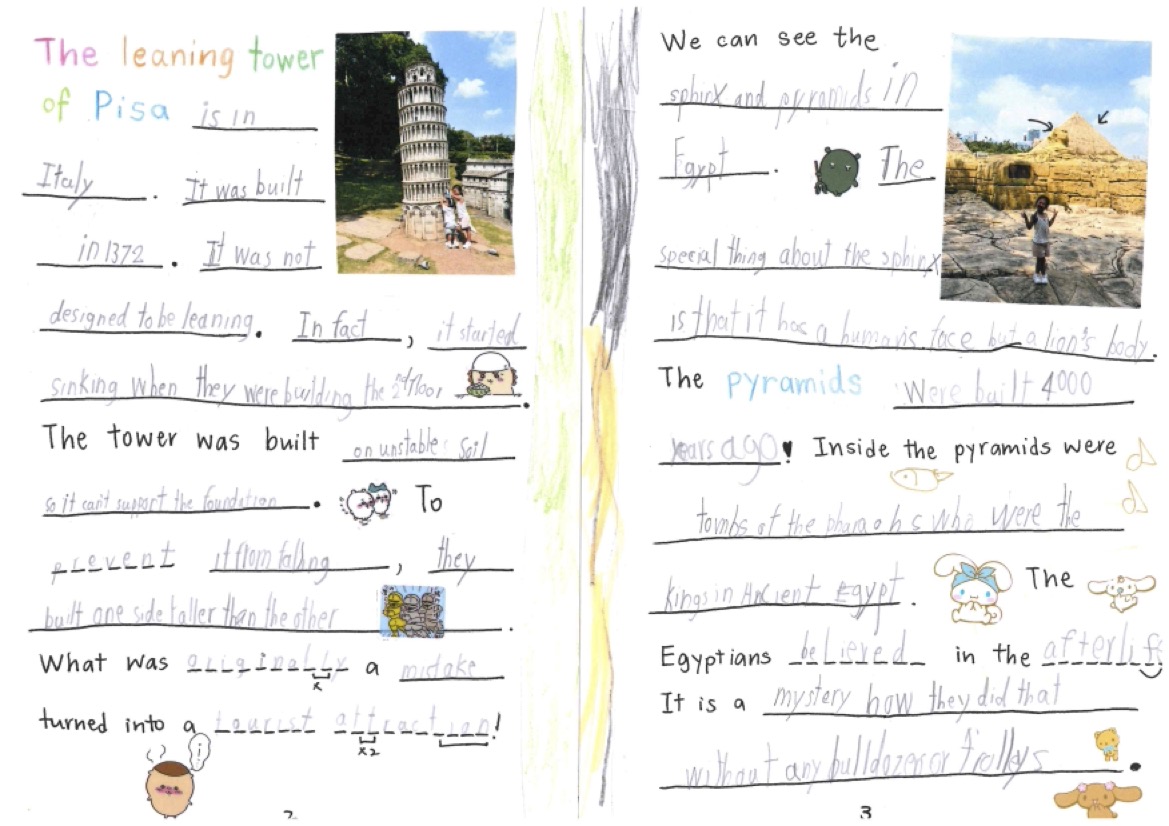 The leaning tower
of Pisa is in
Italy. It was built
in 1372. It was not
designed to be leaning. In fact, it started
sinking when they were building the 2nd floor.
The tower was built on unstable soil
so it can't support the foundation. To
prevent it from falling, they
built one side taller than the other.
What was originally a mistake
x
turned into a tourist attraction!
x2
i
2
We can see the
sphinx and pyramids in
Egypt. The
special thing about the sphinx
is that it has a human's face but a lion's body.
The pyramids were built 4000
years ago! Inside the pyramids were
tombs of the pharaohs who were the
kings in Ancient Egypt. The
Egyptians believed in the afterlife
It is a mystery how they did that
without any bulldozer or trolleys.
3